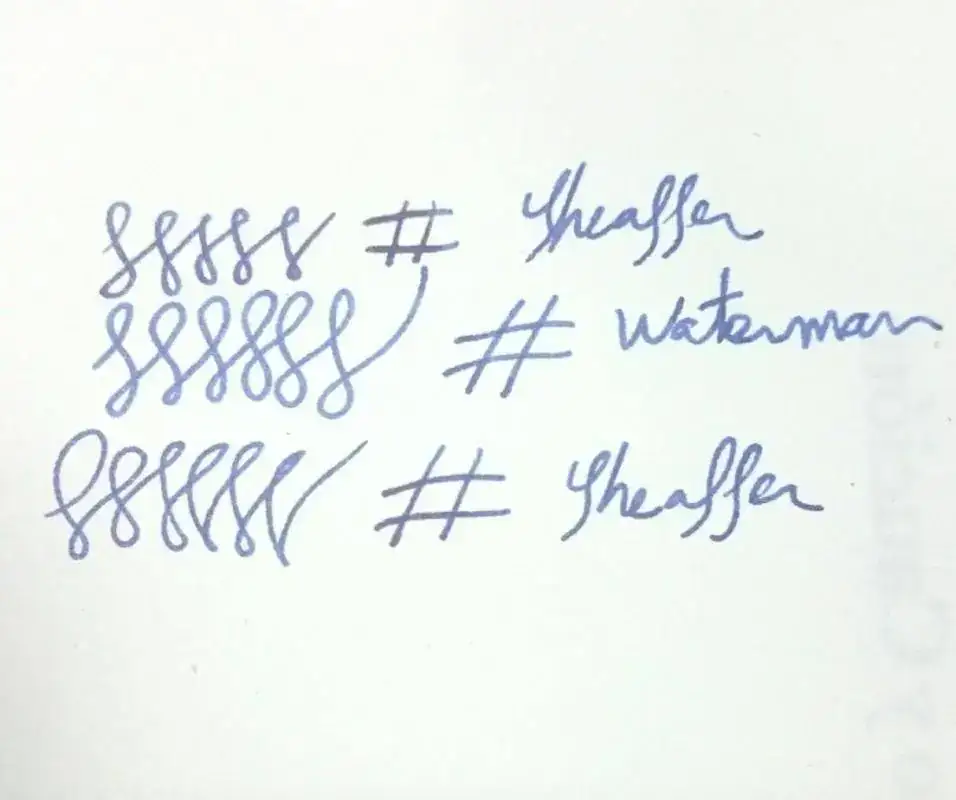 # Sheaffer
# Waterman
# Sheaffer